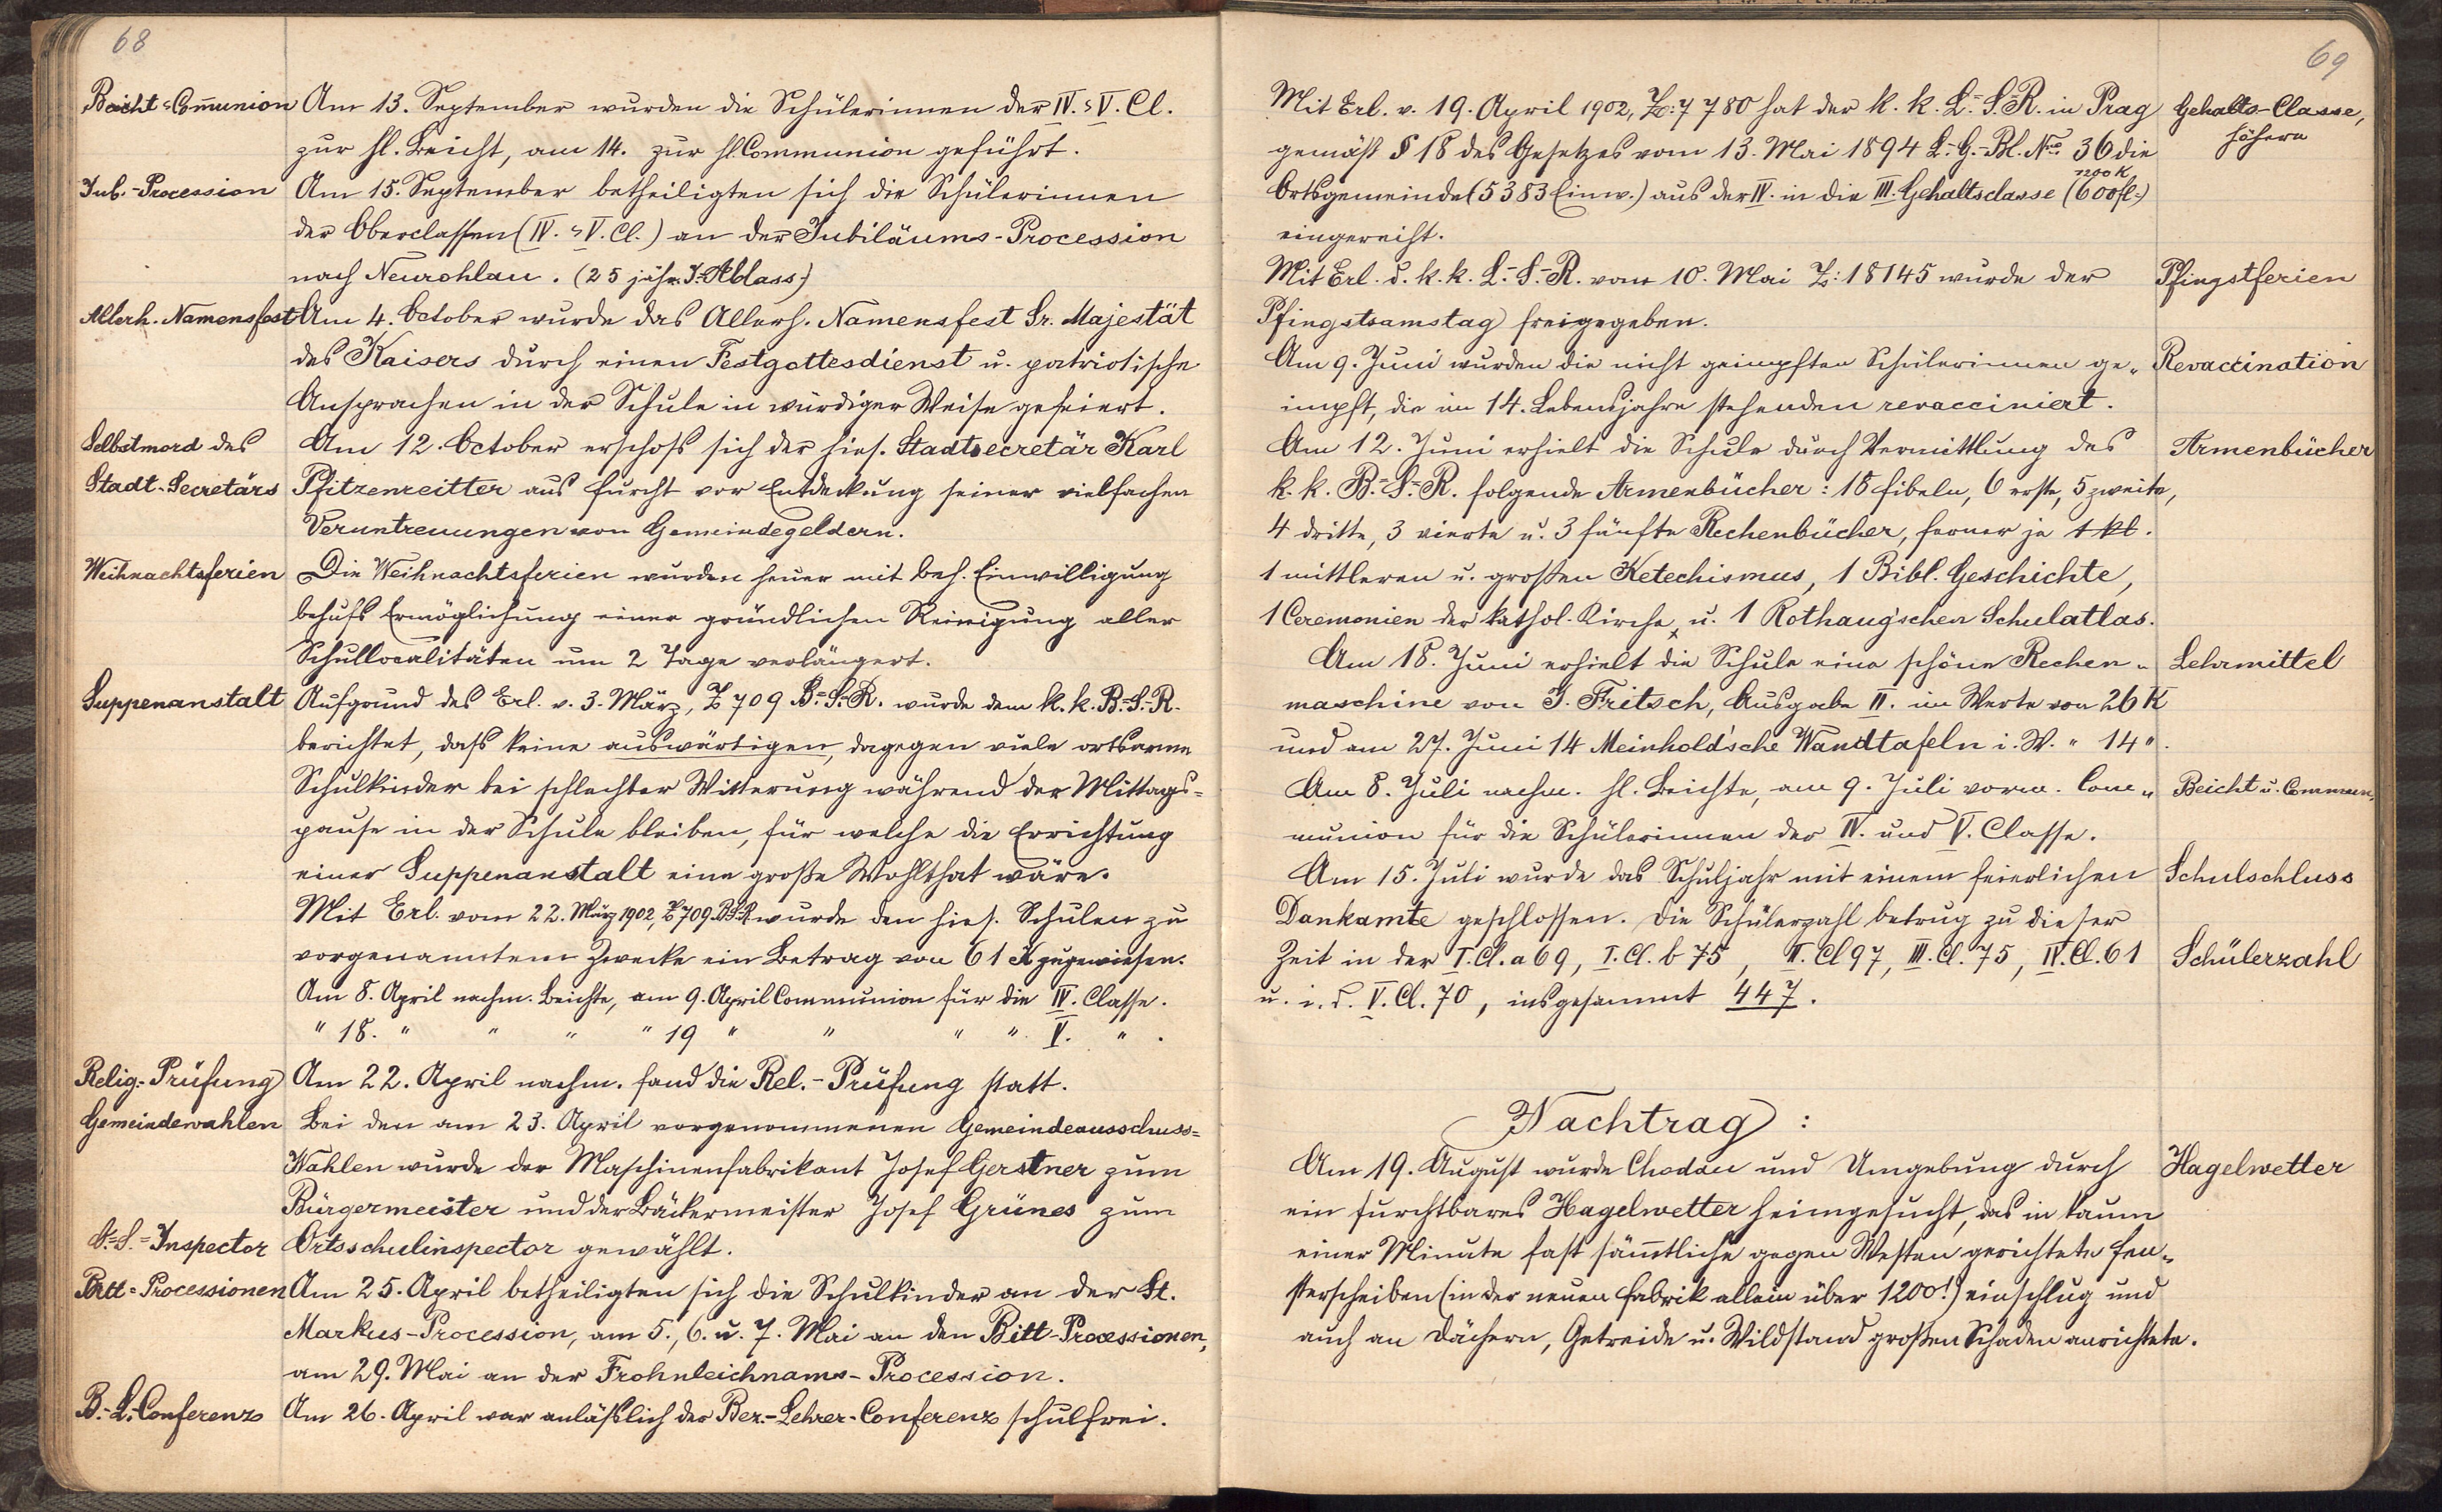 68
Beicht- Com̄union
Am 13. September wurden die Schülerinnen der IV. u. V. Cl.
zur hl. Beicht, am 14. zur hl. Communion geführt.
Jub.-Procession
Am 15. September betheiligten sich die Schülerinnen
der Oberclassen (IV. u. V. Cl.) an der Jubiläums-Procession
nach Neurohlau. (25 jähr. J.-Ablass.)
Allerh. Namensfest
Am 4. October wurde das Allerh. Namensfest Sr. Majestät
des Kaisers durch einen Festgottesdienst u. patriotische
Ansprachen in der Schule in würdiger Weise gefeiert.
Selbstmord des
Am 12. October erschoß sich der hies. Stadtsecretär Karl
Stadt-Secretärs
Pfitzenreitter aus Furcht vor Entdeckung seiner vielfachen
Veruntreuungen von Gemeindegeldern.
Weihnachtsferien
Die Weihnachtsferien wurden heuer mit beh. Einwilligung
behufs Ermöglichung einer gründlichen Reinigung aller
Schullocalitäten um 2 Tage verlängert.
Suppenanstalt
Aufgrund des Erl. v. 3. März, Z 709 B.-S.-R. wurde dem k. k. B.-S.-R.
berichtet, daß keine auswärtigen, dagegen viele ortsarme
Schulkinder bei schlechter Witterung während der Mittags-
pause in der Schule bleiben, für welche die Errichtung
einer Suppenanstalt eine große Wohlthat wäre.
Mit Erl. vom 22. März 1902, Z 709 B.S.R. wurde den hies. Schulen zu
vorgenanntem Zwecke ein Betrag von 61 K zugewiesen.
Am 8. April nachm. Beichte, am 9. April Communion für die IV. Classe.
" 18. " " " " 19 " " " " V. " .
Relig.-Prüfung
Am 22. April nachm. fand die Rel.-Prüfung statt.
Gemeindewahlen
Bei den am 23. April vorgenommenen Gemeindeausschuss-
Wahlen wurde der Maschinenfabrikant Josef Gerstner zum
Bürgermeister und der Bäckermeister Josef Grünes zum
O.-S.-Inspector
Ortsschulinspector gewählt.
Bitt-Processionen
Am 25. April betheiligten sich die Schulkinder an der St.
Markus-Procession, am 5., 6. u. 7. Mai an den Bitt-Processionen,
am 29. Mai an der Frohnleichnams-Procession.
B.-L.-Conferenz
Am 26. April war anläßlich der Bez.-Lehrer-Conferenz schulfrei.
69
Mit Erl. v. 19. April 1902, Z: 7780 hat der k. k. L.-S.-R. in Prag
Gehalts-Classe,
höhere
gemäß § 18 des Gesetzes vom 13. Mai 1894 L.-G.-Bl. Nro. 36 die
1200 K
Ortsgemeinde (5383 Einw.) aus der IV. in die III. Gehaltsclasse (600 fl.)
eingereiht.
Mit Erl. d. k. k. L.-S.-R. vom 10. Mai Z: 18145 wurde der
Pfingstferien
Pfingstsamstag freigegeben.
Am 9. Juni wurden die nicht geimpften Schülerinnen ge-
Revaccination
impft, die im 14. Lebensjahre stehenden revacciniert.
Am 12. Juni erhielt die Schule durch Vermittlung des
Armenbücher
k. k. B.-S.-R. folgende Armenbücher: 18 Fibeln, 6 erste, 5 zweite,
4 dritte, 3 vierte u. 3 fünfte Rechenbücher, ferner je 1 kl.
1 mittleren u. großen Ketechismus, 1 Bibl. Geschichte,
1 Ceremonien der kathol. Kirche, u. 1 Rothaug'schen Schulatlas.
Am 18. Juni erhielt die Schule eine schöne Rechen-
Lehrmittel
maschine von J. Fritsch, Ausgabe II. im Werte von 26 K
und am 27. Juni 14 Meinhold'sche Wandtafeln i. W. " 14 ".
Am 8. Juli nachm. hl. Beichte, am 9. Juli vorm. Com-
Beicht u. Commun.
munion für die Schülerinnen der IV. und V. Classe.
Am 15. Juli wurde das Schuljahr mit einem feierlichen
Schulschluss
Dankamte geschlossen. Die Schülerzahl betrug zu dieser
Zeit in der I. Cl. a 69, I. Cl. b 75, II. Cl 97, III. Cl. 75, IV. Cl. 61
Schülerzahl
u. i. d. V. Cl. 70, insgesammt 447.
Nachtrag :
Am 19. August wurde Chodau und Umgebung durch
Hagelwetter
ein furchtbares Hagelwetter heimgesucht, das in kaum
einer Minute fast säm̄tliche gegen Westen gerichtete Fen-
sterscheiben (in der neuen Fabrik allein über 1200!) einschlug und
auch an Dächern, Getreide u. Wildstand großen Schaden anrichtete.